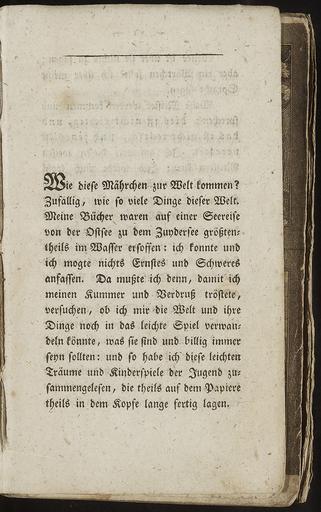 Wie diese Mährchen zur Welt kommen?
Zufällig, wie so viele Dinge dieser Welt.
Meine Bücher waren auf einer Seereise
von der Ostsee zu dem Zuydersee größten-
theils im Wasser ersoffen: ich konnte und
ich mogte nichts Ernstes und Schweres
anfassen. Da mußte ich denn, damit ich
meinen Kummer und Verdruß tröstete,
versuchen, ob ich mir die Welt und ihre
Dinge noch in das leichte Spiel verwan-
deln könnte, was sie sind und billig immer
seyn sollten: und so habe ich diese leichten
Träume und Kinderspiele der Jugend zu-
sammengelesen, die theils auf dem Papiere
theils in dem Kopfe lange fertig lagen.